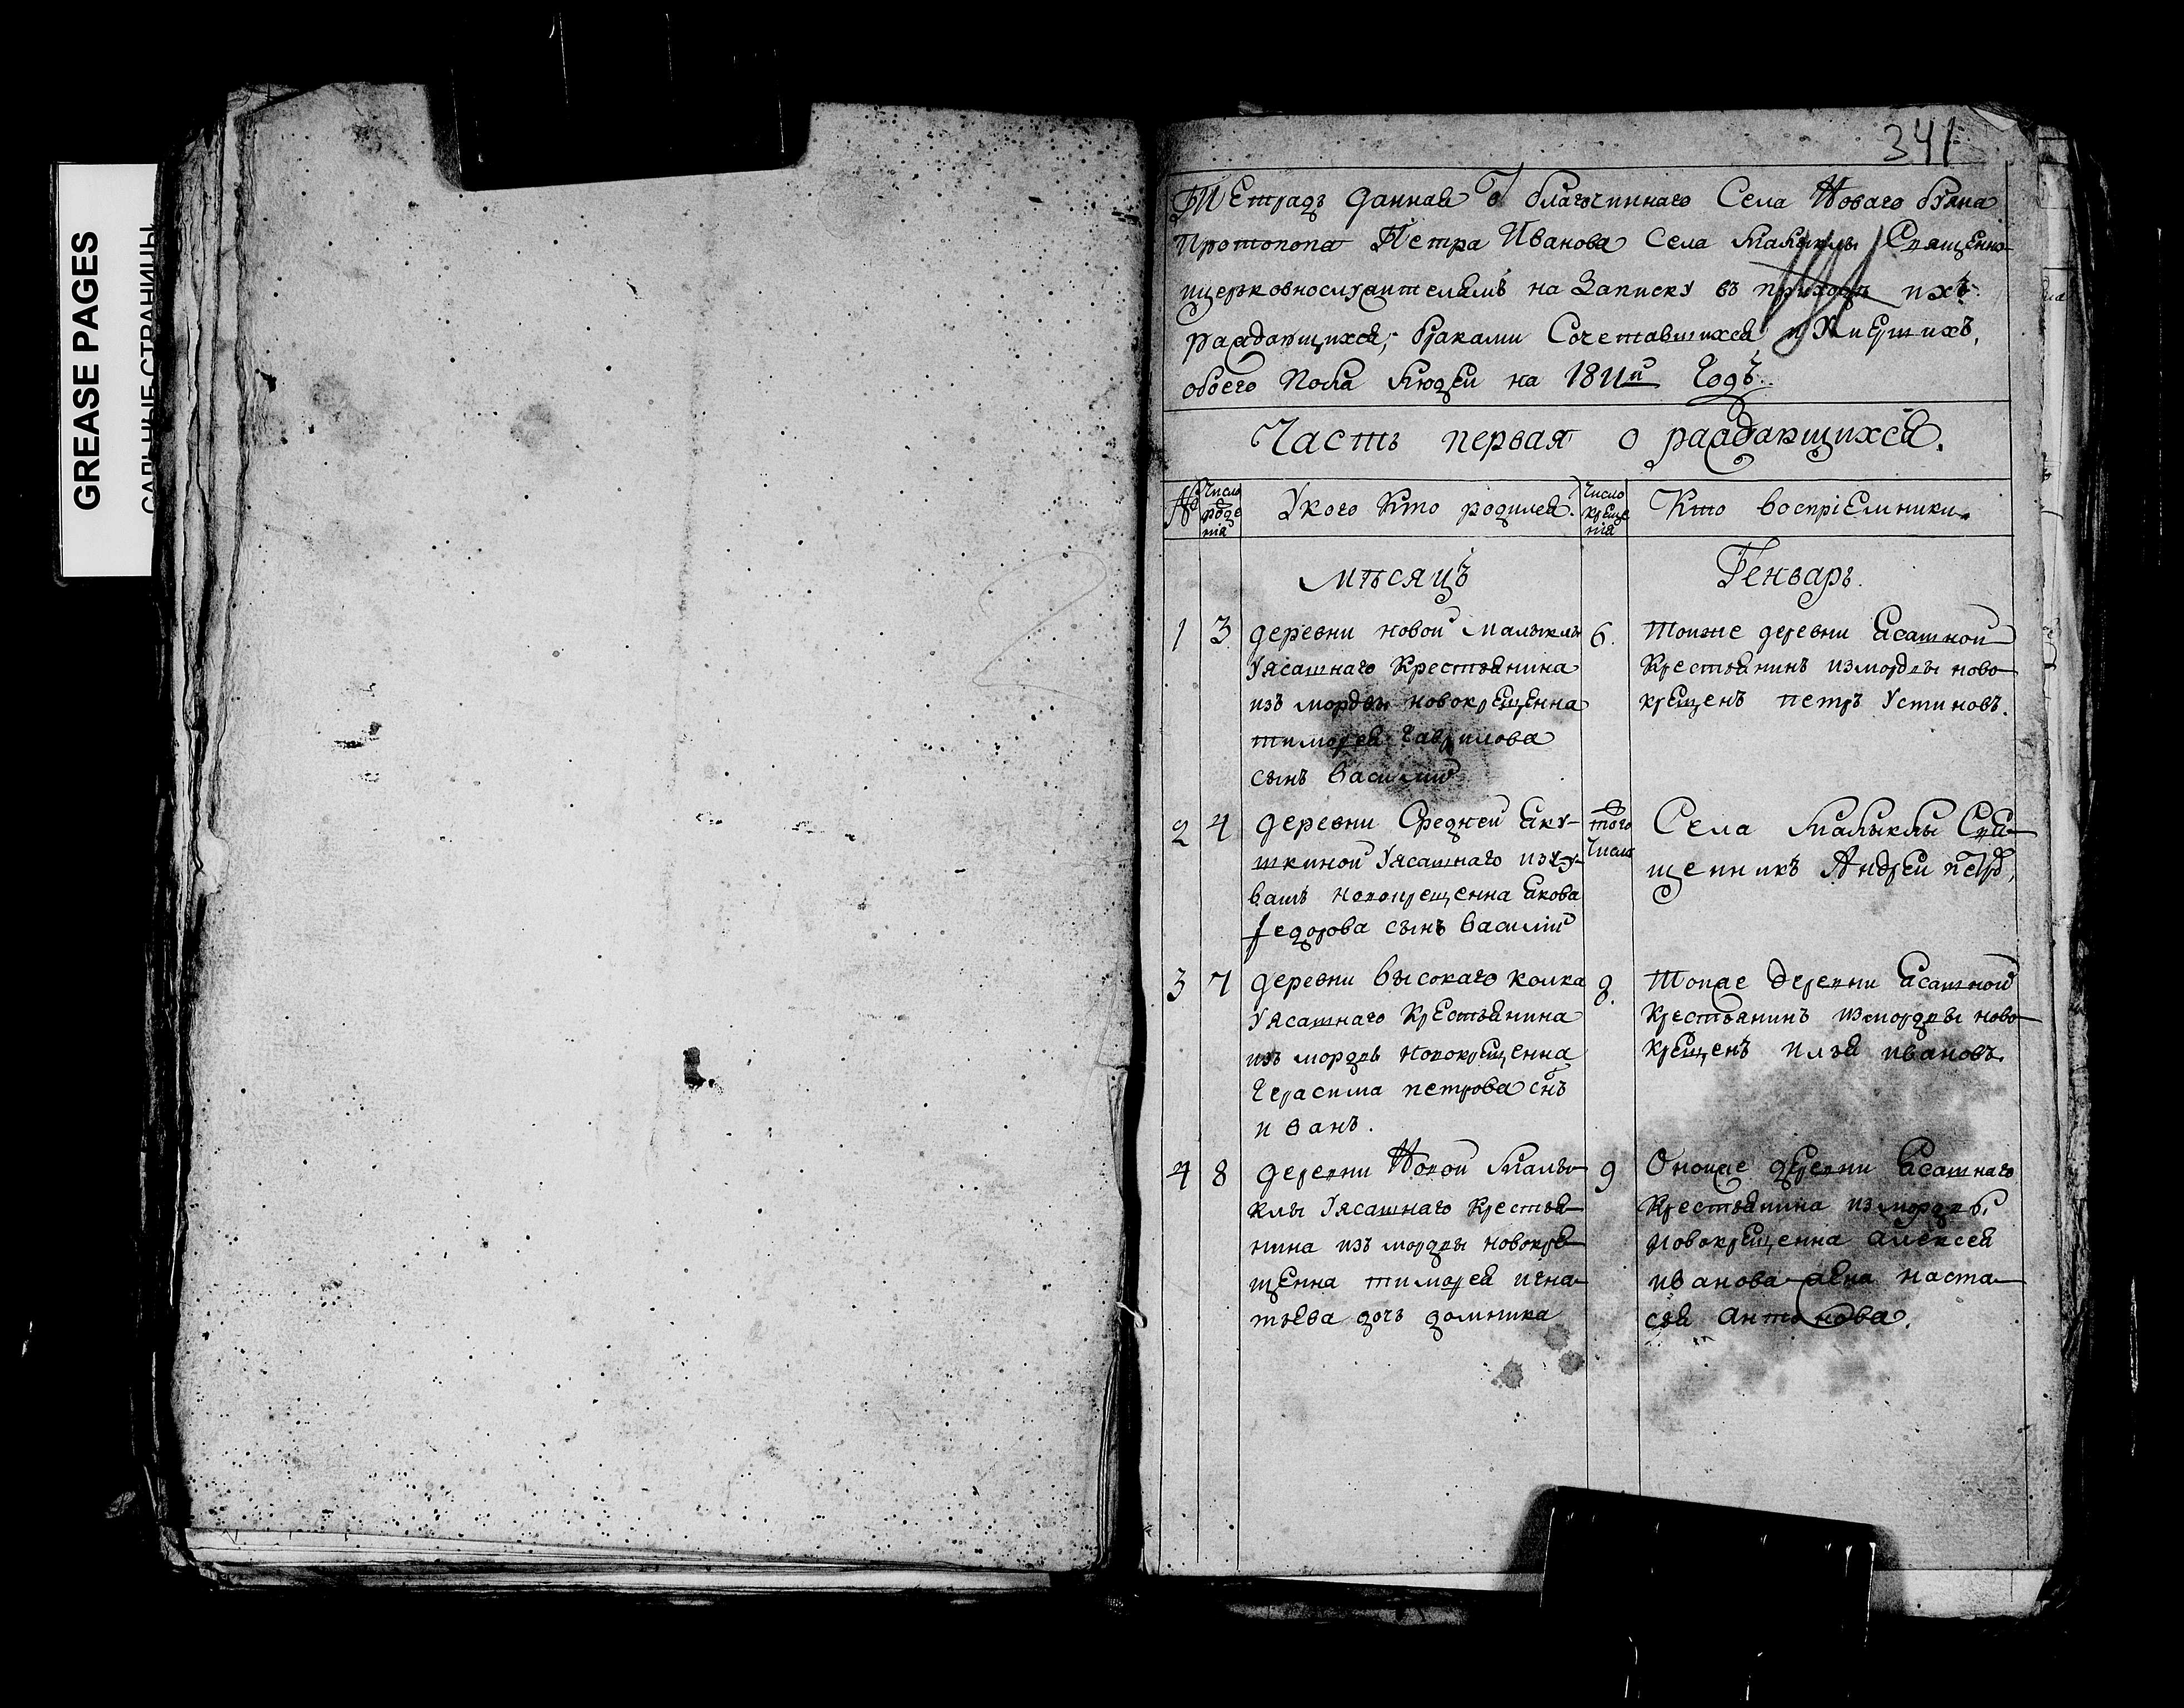 GREASE PAGES
САЛЬНЫЕ СТРАНИЦЫ
341
Тетрадь данная ѿ благочиннаго Села Новаго буяна
Протопопа Петра Иванова Села Малыклы Священно
церьковнослужителямъ на Записку въ приходѣ ихъ
раждающихся, браками Сочетавшихся и умершихъ,
обоего Пола Людей на 1811й Годъ.
Часть первая о раждающихся.
№ Число рожденія Укого Кто родился. Число крещенія Кто воспріемники.
мѣсяцъ Генварь.
1 3 деревни новой малыклы
Уясашнаго Крестьянина
изъ мордвы новокрещенна
тимофея гаврилова
сынъ василий
6. Тоиже деревни ясашной
Крестьянинъ измордвы ново
крещенъ петръ Устиновъ.
2 4 деревни Средней яку-
шкиной Уясашнаго изчу-
вашъ новокрещенна якова
федорова сынъ василий
того Числа
Села Малыклы Свя-
щенникъ Андреи петр,
3 7 деревни высокаго колка
Уясашнаго Крестьянина
изъ мордвы новокрещенна
герасима петрова снъ
иванъ.
8. Тоиже деревни ясашной
Крестьянинъ измордвы ново
крещенъ илья ивановъ.
4 8 деревни Новой Малы-
клы Уясашнаго крестья-
нина изъ мордвы новокре-
щенна тимофея игна-
тьева дочь домника
9 Оноиже деревни ясашнаго
Крестьянина измордвы
новокрещенна алексея
иванова жена наста-
сья антонова.